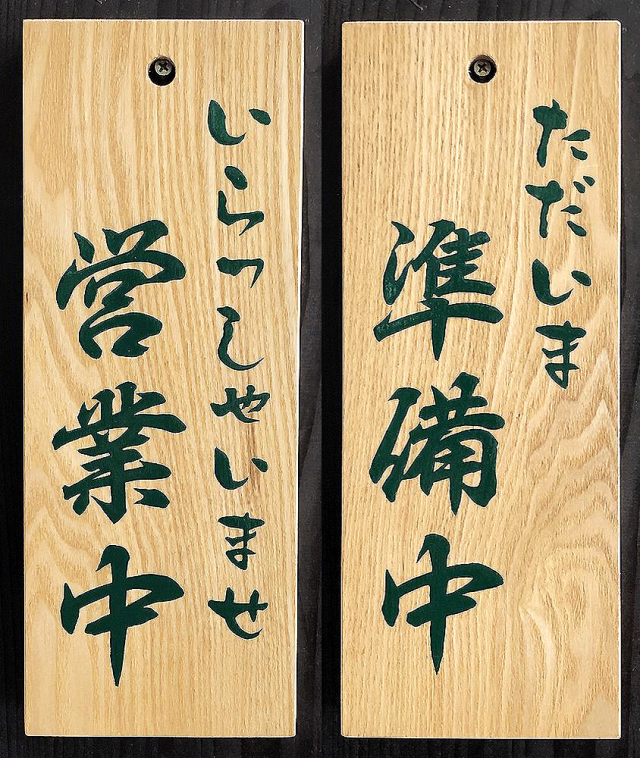 いらっしゃいませ
営業中
ただいま
準備中